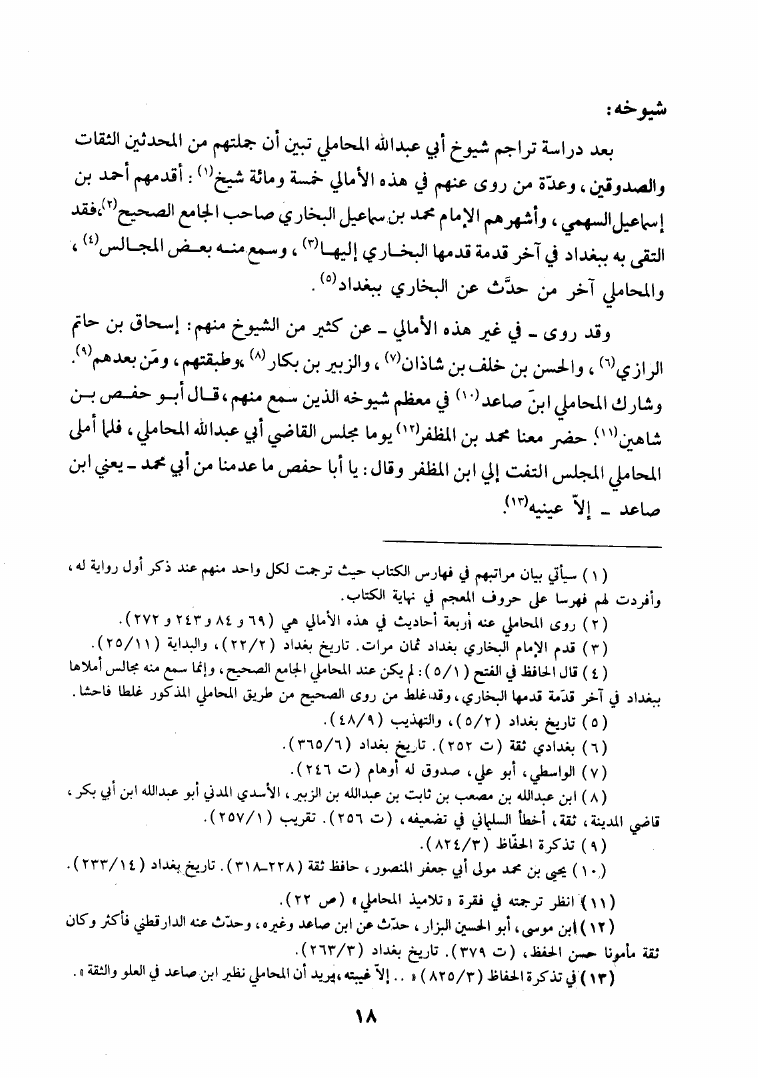 شيوخه:
بعد دراسة تراجم شيوخ أبي عبدالله المحاملي تبين أن جملتهم من المحدثين الثقات
والصدوقين، وعدّة من روى عنهم في هذه الأمالي خمسة ومائة شيخ(١): أقدمهم أحمد بن
إسماعيل السهمي، وأشهرهم الإمام محمد بن سماعيل البخاري صاحب الجامع الصحيح(٢)، فقد
التقى به ببغداد في آخر قدمة قدمها البخاري إليها(٣)، وسمع منه بعض المجالس(٤)،
والمحاملي آخر من حدَّث عن البخاري ببغداد(٥).
وقد روى ـ في غير هذه الأمالي ـ عن كثير من الشيوخ منهم: إسحاق بن حاتم
الرازي(٦)، والحسن بن خلف بن شاذان(٧)، والزبير بن بكار(٨)، وطبقتهم، ومَن بعدهم(٩).
وشارك المحاملي ابنَ صاعد(١٠) في معظم شيوخه الذين سمع منهم، قال أبو حفص بن
شاهين(١١): حضر معنا محمد بن المظفر(١٢) يوما مجلس القاضي أبي عبدالله المحاملي، فلما أملى
المحاملي المجلس التفت إلي ابن المظفر وقال: يا أبا حفص ما عدمنا من أبي محمد ـ يعني ابن
صاعد ـ إلاّ عينيه(١٣).
(١) سيأتي بيان مراتبهم في فهارس الكتاب حيث ترجمت لكل واحد منهم عند ذكر أول رواية له،
وأفردت لهم فهرسا على حروف المعجم في نهاية الكتاب.
(٢) روى المحاملي عنه أربعة أحاديث في هذه الأمالي هي (٦٩ و ٨٤ و ٢٤٣ و ٢٧٢).
(٣) قدم الإمام البخاري بغداد ثمان مرات. تاريخ بغداد (٢٢/٢)، والبداية (٢٥/١١).
(٤) قال الحافظ في الفتح (٥/١): لم يكن عند المحاملي الجامع الصحيح، وإنما سمع منه مجالس أملاها
ببغداد في آخر قدّمة قدمها البخاري، وقد غلط من روى الصحيح من طريق المحاملي المذكور غلطا فاحشا.
(٥) تاريخ بغداد (٥/٢)، والتهذيب (٤٨/٩).
(٦) بغدادي ثقة (ت ٢٥٢). تاريخ بغداد (٣٦٥/٦).
(٧) الواسطي، أبو علي، صدوق له أوهام (ت ٢٤٦).
(٨) ابن عبدالله بن مصعب بن ثابت بن عبدالله بن الزبير، الأسدي المدني أبو عبدالله ابن أبي بكر،
قاضي المدينة، ثقة، أخطأ السليماني في تضعيفه، (ت ٢٥٦). تقريب (٢٥٧/١).
(٩) تذكرة الحفّاظ (٨٢٤/٣).
(١٠) يحيى بن محمد مولى أبي جعفر المنصور، حافظ ثقة (٢٢٨ـ٣١٨). تاريخ بغداد (٢٣٣/١٤).
(١١) انظر ترجمته في فقرة «تلاميذ المحاملي» (ص ٢٢).
(١٢) ابن موسى، أبو الحسين البزار، حدّث عن ابن صاعد وغيره، وحدّث عنه الدارقطني فأكثر وكان
ثقة مأمونا حسن الحفظ، (ت ٣٧٩). تاريخ بغداد (٢٦٣/٣).
(١٣) في تذكرة الحفاظ (٨٢٥/٣) «.. إلاّ غيبته، يريد أن المحاملي نظير ابن صاعد في العلو والثقة».
١٨